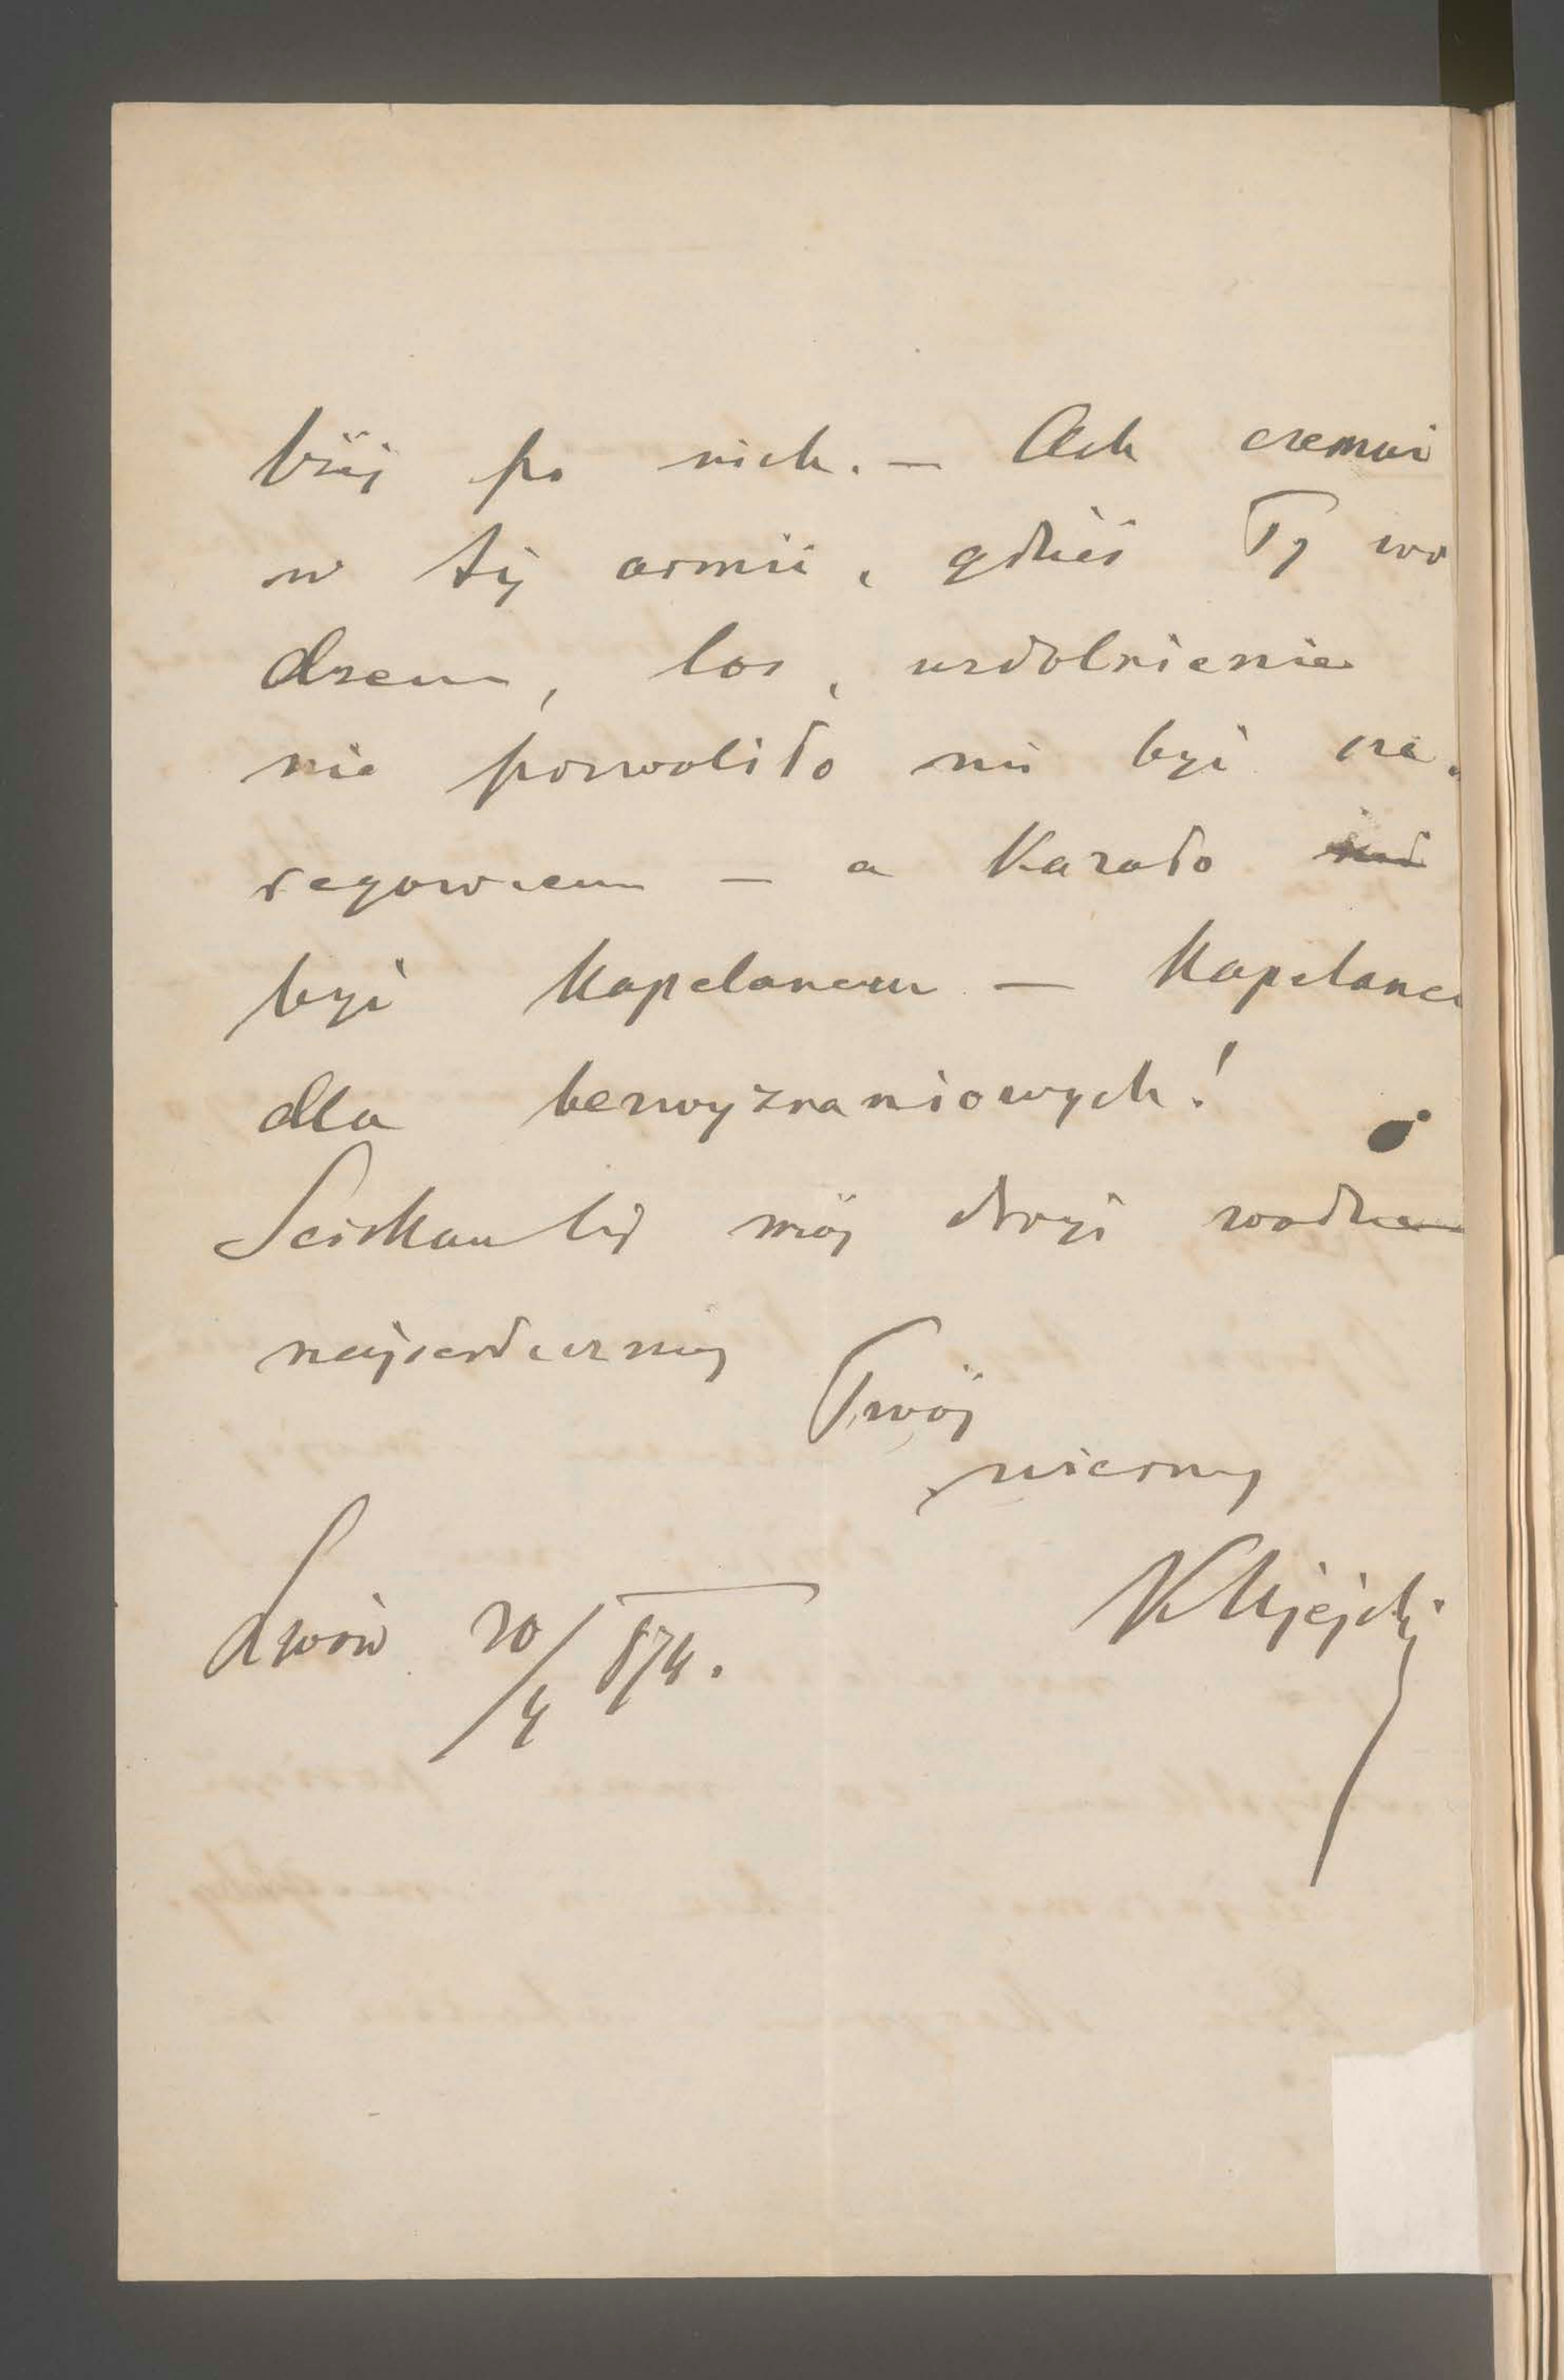 bij po nich. — Ach czemuż
w tej armii, gdzieś Ty wo
dzem, los, uzdolnienie
nie pozwoliło mi być sze.
regowcem — a kazało
być kapelanem — kapelanem
dla bezwyznaniowych!
Sciskam Cię mój drogi wodzu
najserdeczniej
Twój
wierny
K Ujejski
Lwów 20/4 874.